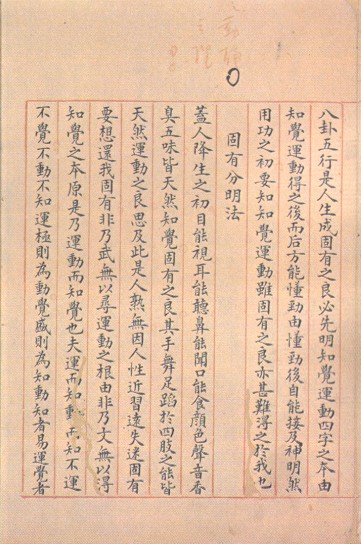 八卦五行是人生成固有之良必先明知覺運動四字之本由
知覺運動得之後而后方能懂勁由懂勁後自能接及神明然
用功之初要知知覺運動雖固有之良亦甚難得之於我也
固有分明法
蓋人降生之初目能視耳能聽鼻能聞口能食顏色聲音香
臭五味皆天然知覺固有之良其手舞足蹈於四肢之能皆
天然運動之良思及此是人孰無因人性近習遠失迷固有
要想還我固有非乃武無以尋運動之根由非乃文無以得
知覺之本原是乃運動而知覺也夫運而知動而知不運
不覺不動不知運極則為動覺盛則為知動知者易運覺者